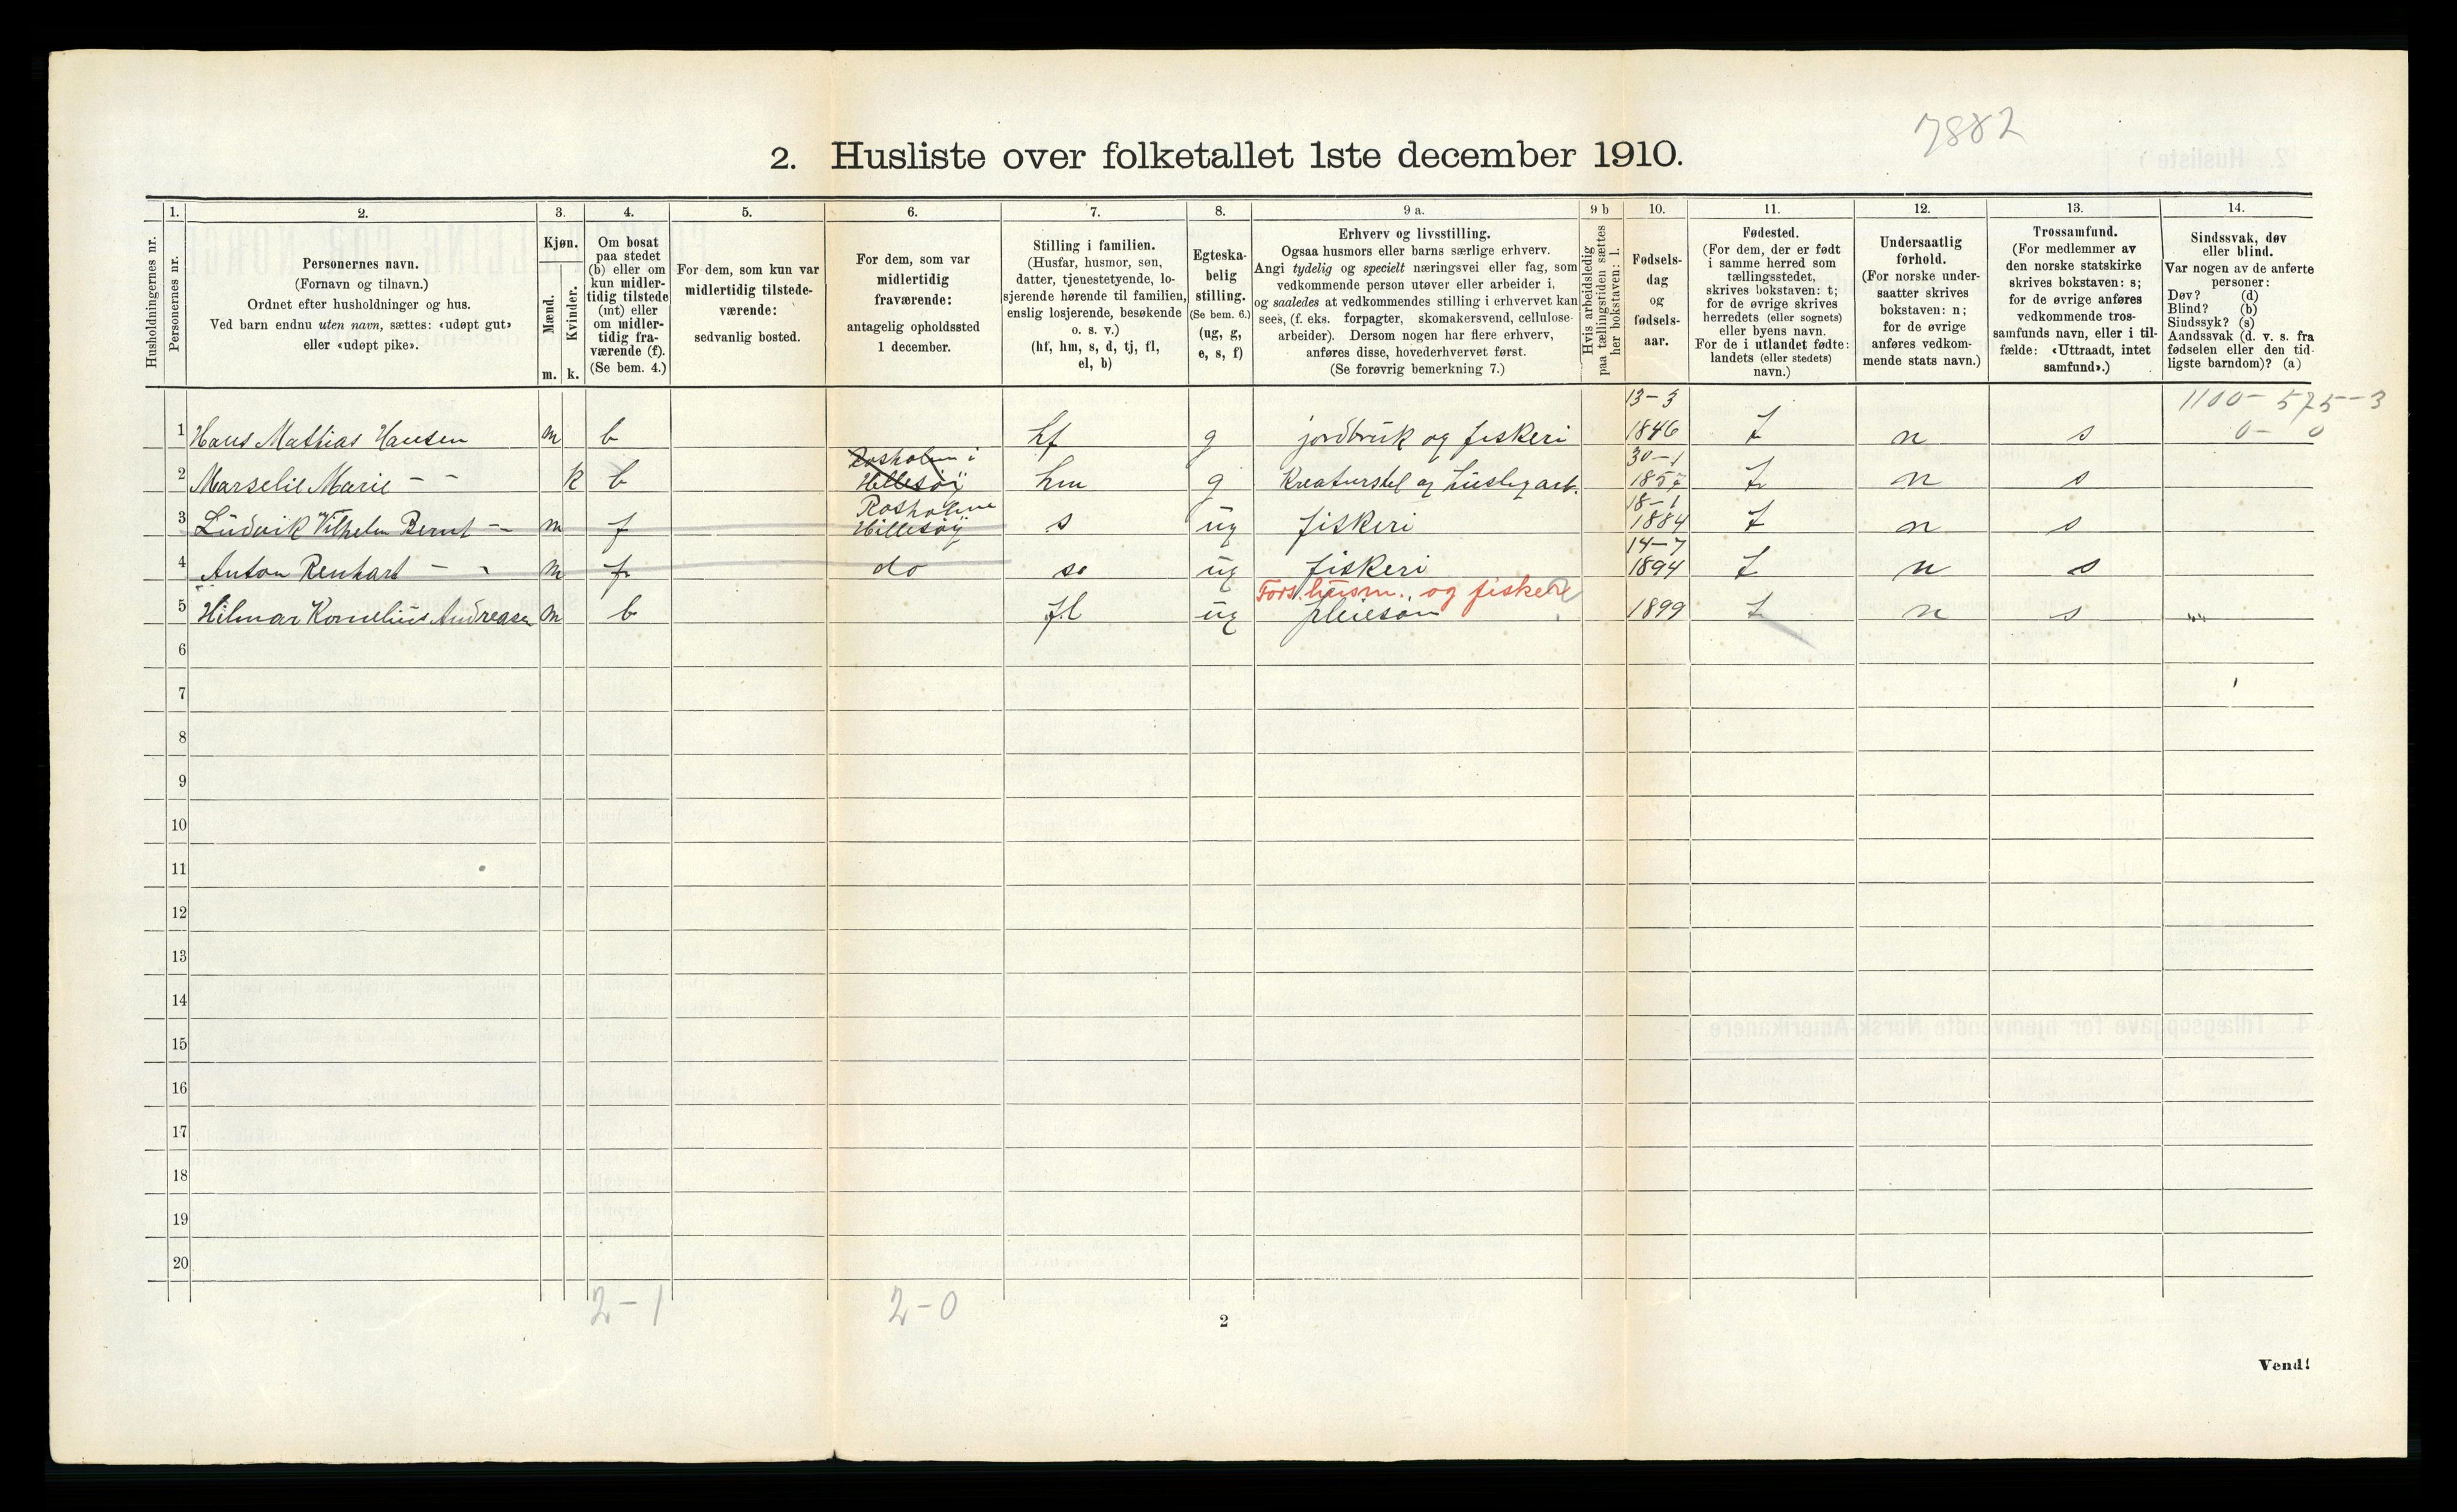 7882
2. Husliste over folketallet 1ste december 1910.
Husholdningernes nr.
1.
Personernes nr.
2.
Personernes navn.
(Fornavn og tilnavn.)
Ordnet efter husholdninger og hus.
Ved barn endnu uten navn, sættes: «udøpt gut»
eller «udøpt pike».
3.
Kjøn.
Mænd.
Kvinder.
m. k.
4.
Om bosat
paa stedet
(b) eller om
kun midler-
tidig tilstede
(mt) eller
om midler-
tidig fra-
værende (f).
(Se bem. 4.)
5.
For dem, som kun var
midlertidig tilstede-
værende:
sedvanlig bosted.
6.
For dem, som var
midlertidig
fraværende:
antagelig opholdssted
1 december.
7.
Stilling i familien.
(Husfar, husmor, søn,
datter, tjenestetyende, lo-
sjerende hørende til familien,
enslig losjerende, besøkende
o. s. v.)
(hf, hm, s, d, tj, fl,
el, b)
8.
Egteska-
belig
stilling.
(Se bem. 6.)
(ug, g,
e, s, f)
9 a.
Erhverv og livsstilling.
Ogsaa husmors eller barns særlige erhverv.
Angi tydelig og specielt næringsvei eller fag, som
vedkommende person utøver eller arbeider i,
og saaledes at vedkommendes stilling i erhvervet kan
sees, (f. eks. forpagter, skomakersvend, cellulose-
arbeider). Dersom nogen har flere erhverv,
anføres disse, hovederhvervet først.
(Se forøvrig bemerkning 7.)
9 b
Hvis arbeidsledig
paa tællingstiden sættes
her bokstaven: l.
10.
Fødsels-
dag
og
fødsels-
aar.
11.
Fødested.
(For dem, der er født
i samme herred som
tællingsstedet,
skrives bokstaven: t;
for de øvrige skrives
herredets (eller sognets)
eller byens navn.
For de i utlandet fødte:
landets (eller stedets)
navn.)
12.
Undersaatlig
forhold.
(For norske under-
saatter skrives
bokstaven: n;
for de øvrige
anføres vedkom-
mende stats navn.)
13.
Trossamfund.
(For medlemmer av
den norske statskirke
skrives bokstaven: s;
for de øvrige anføres
vedkommende tros-
samfunds navn, eller i til-
fælde: «Uttraadt, intet
samfund».)
14.
Sindssvak, døv
eller blind.
Var nogen av de anførte
personer:
Døv? (d)
Blind? (b)
Sindssyk? (s)
Aandssvak (d. v. s. fra
fødselen eller den tid-
ligste barndom)? (a)
13-3 1100-575-3
1 Hans Mathias Hansen m b hf g jordbruk og fiskeri 1846 t n s 0- 0
Rosholm i 30-1
2 Marselie Marie - - k b Hillesöy hm g Kreaturstel og huslig arb. t n s
Rosholme 18-1
3 Ludvik Vilhelm Bernt - m f Hillesöy s ug fiskeri 1884 t n s
14-7
4 Anton Renhart - - m f do s ug fiskeri 1894 t n s
Fors. husm. og fisker
5 Hilmar Kornelius Andreasen m b fl ug pleiesøn 1899 t n s
6
7
8
9
10
11
12
13
14
15
16
17
18
19
20
2-1 2-0
2
Vend!